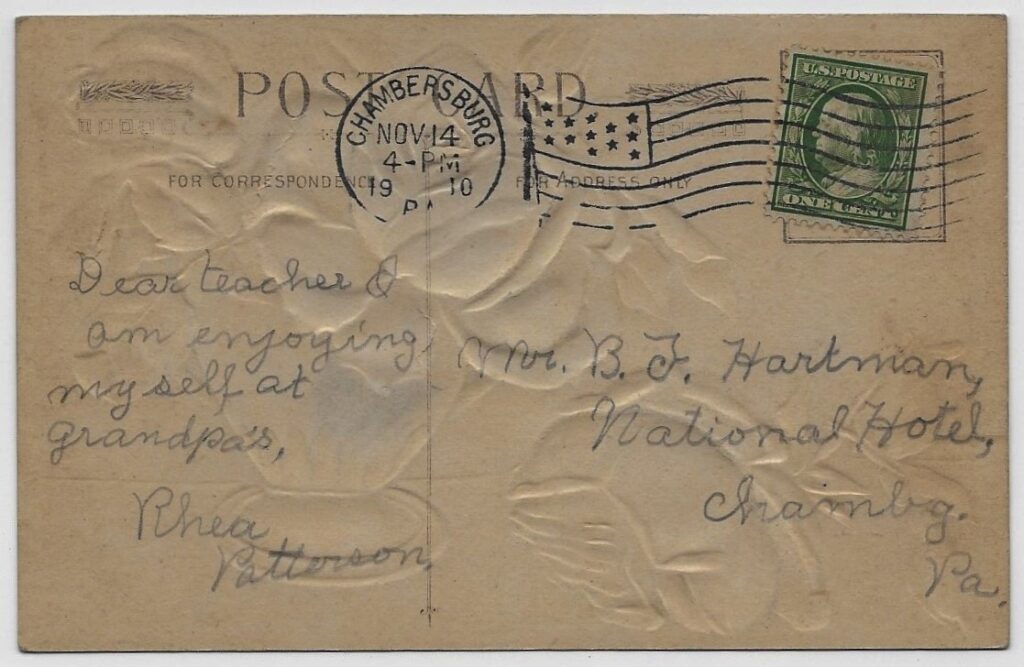 POST CARD
CHAMBERSBURG
NOV 14
4-PM
19 10
PA
U.S. POSTAGE
ONE CENT
FOR CORRESPONDENCE
FOR ADDRESS ONLY
Dear teacher I
am enjoying
myself at
grandpa's,
Rhea
Patterson,
Mr. B. F. Hartman,
National Hotel,
Chambg.
Pa.